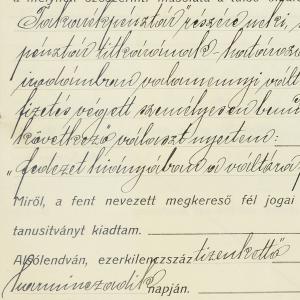 Takarékpénztár" részére neki, s
pénztár titkárának - határozo
irodámban valamennyi vált
fizetés végett személyesen bem
következő választ nyertem:
„fedezet hiányában a váltóra
Miről, a fent nevezett megkereső fél jogai
tanusítványt kiadtam.
Alsólendván, ezerkilenczszáz tizenkettő
harminczadik napján.